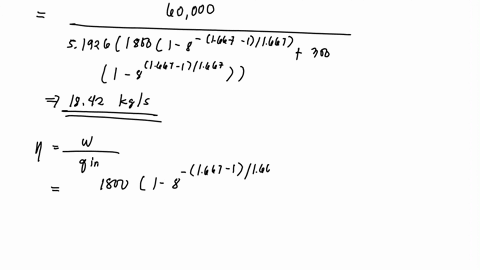 = 60,000
5.1926 ( 1800 ( 1 - 8^-(1.667-1)/1.667) + 300
( 1 - 8^(1.667-1)/1.667 ) )
⇒ 18.42 kg/s
η = w
qin
= 1800 ( 1 - 8^-(1.667-1)/1.66